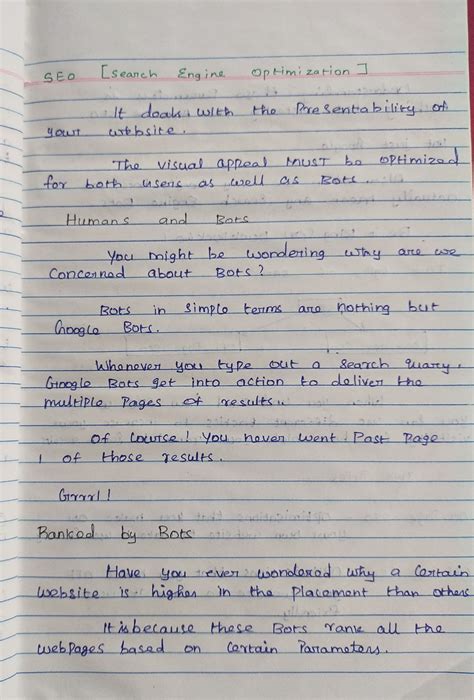 SEO [Search Engine Optimization]
It deals with the Presentability of
your website.
The visual appeal MUST be optimized
for both users as well as Bots
Humans and Bots
You might be wondering why are we
Concerned about Bots?
Bots in simple terms are nothing but
Google Bots.
Whenever you type out a search query,
Google Bots get into action to deliver the
multiple Pages of results..
Of Course! You never went Past Page
1 of those results.
Grrrl!
Ranked by Bots
Have you ever wondered why a Certain
website is higher in the placement than others
It is because these Bots rank all the
webpages based on Certain Parameters.